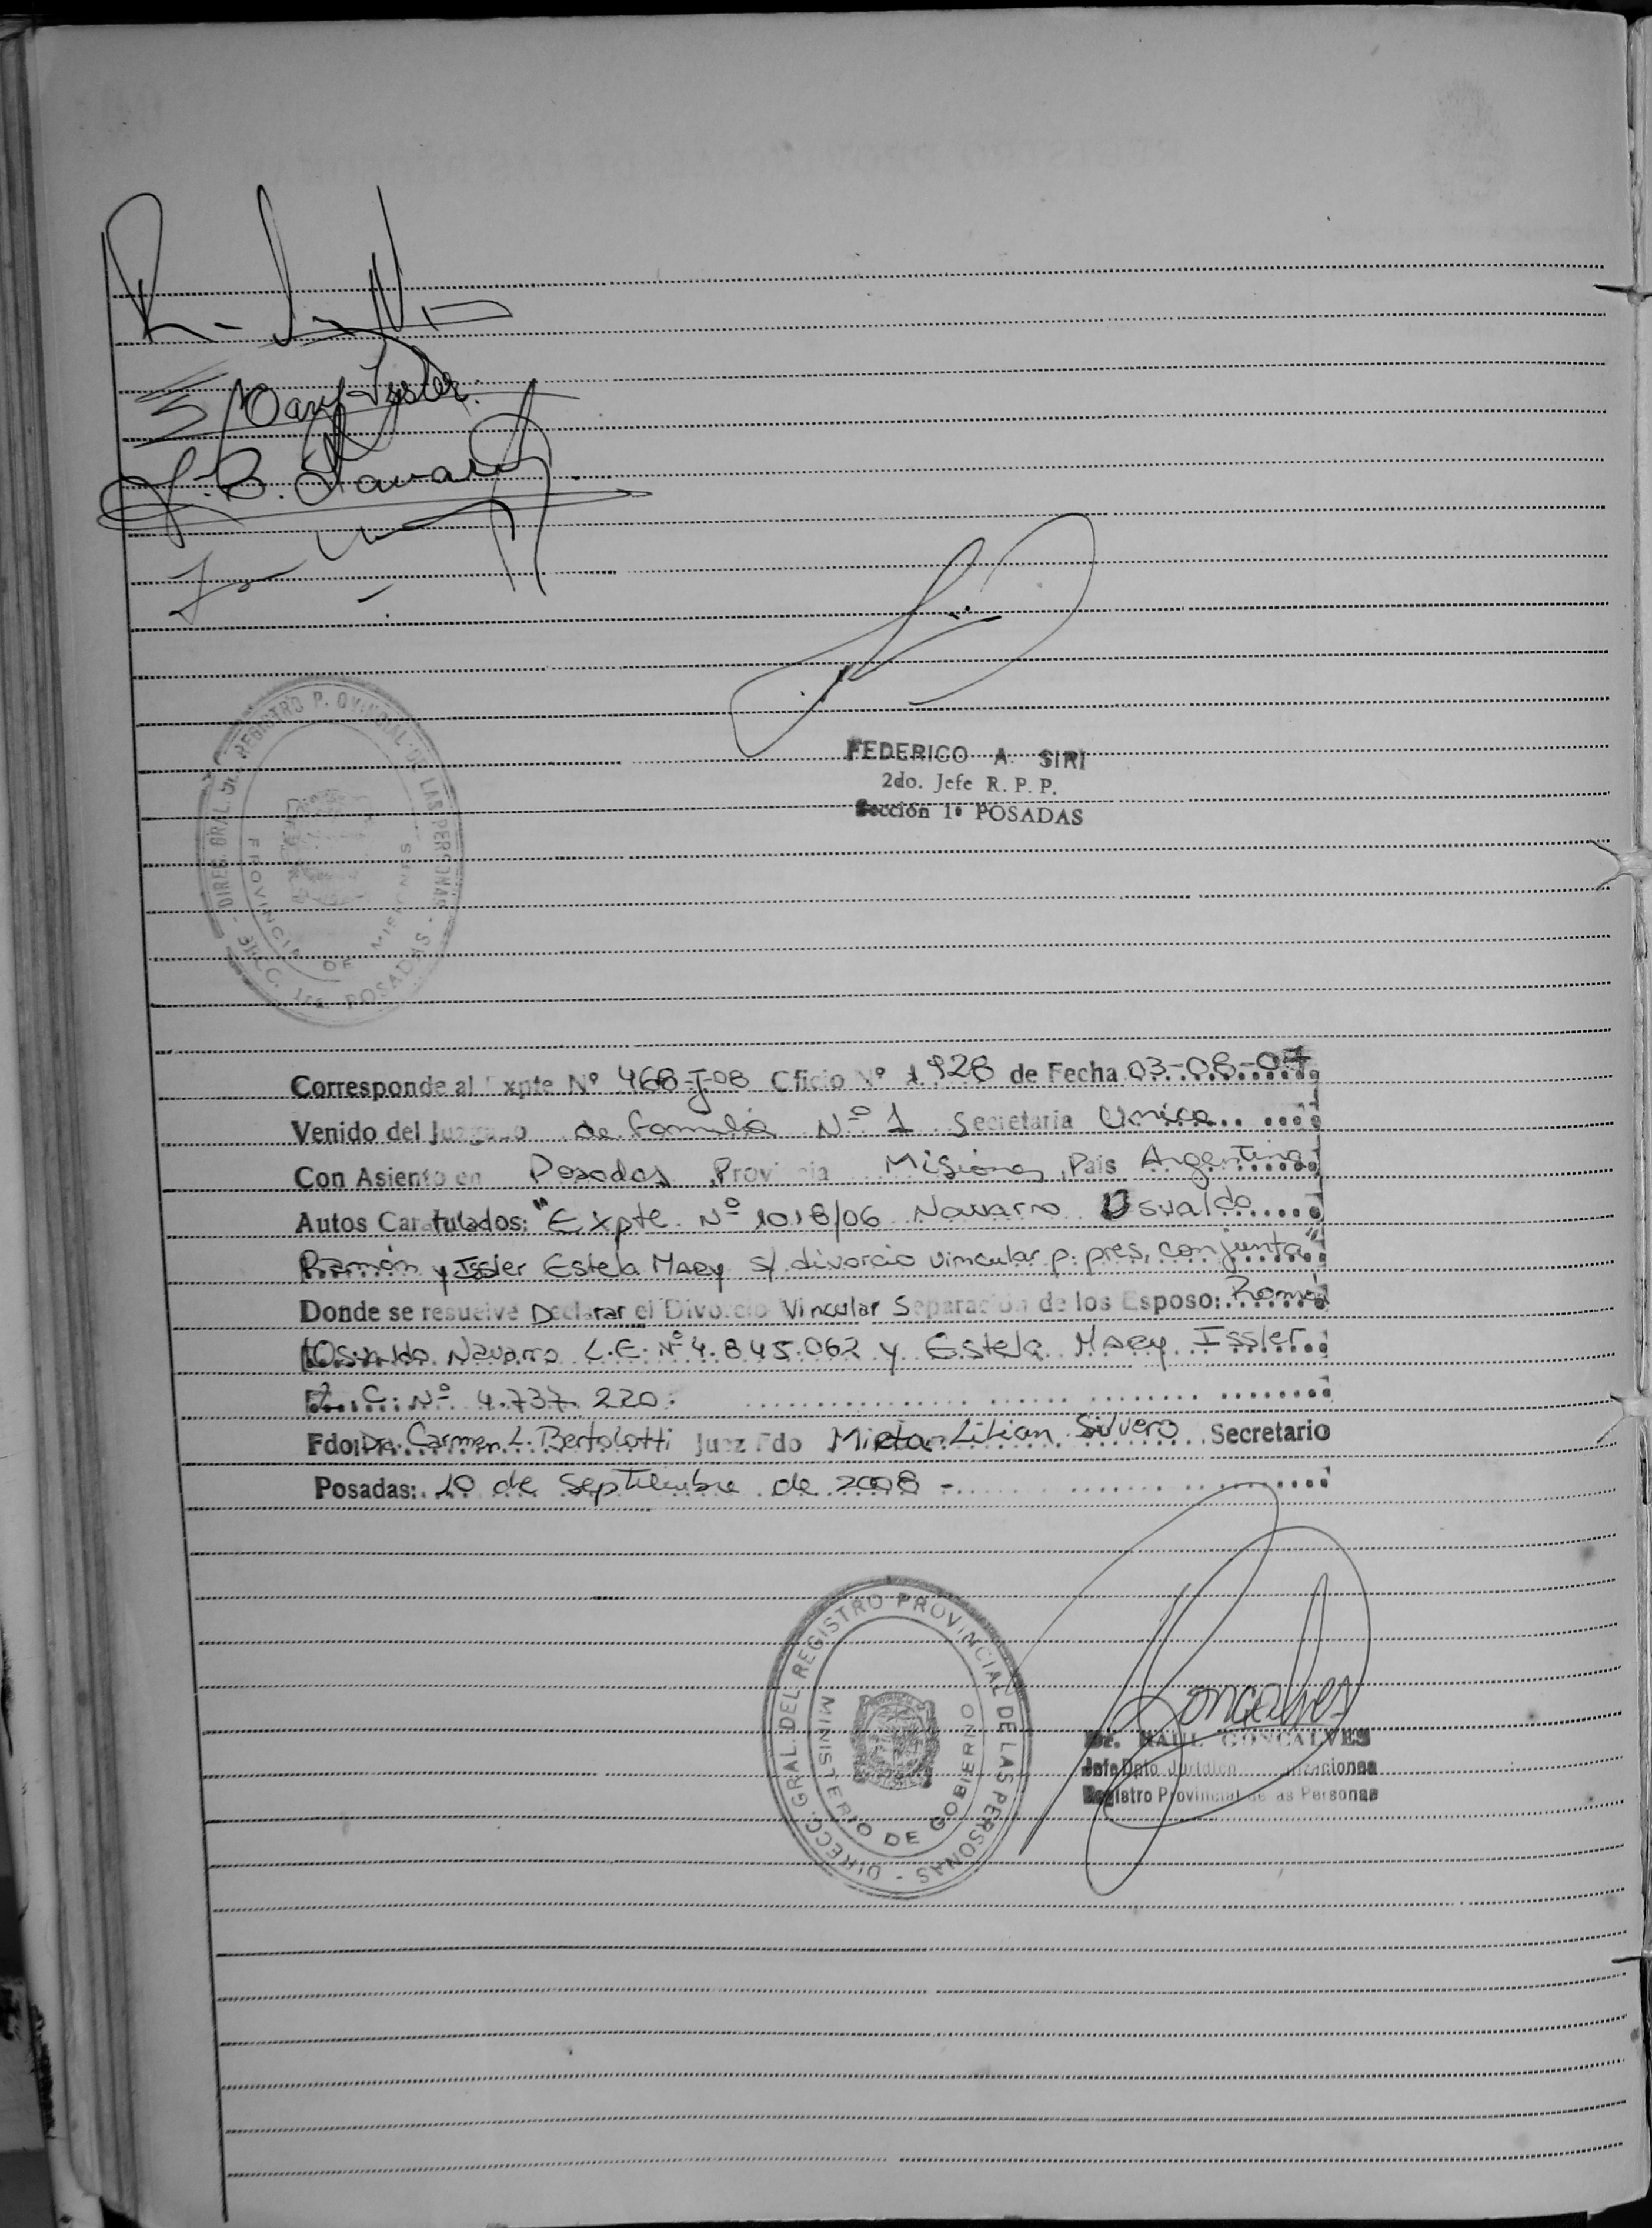 Mary Issler.
FEDERICO A. SIRI
2do. Jefe R. P. P.
Sección 1ª POSADAS
DIREC. GRAL. REGISTRO P. OVINCIAL DE LAS PERSONAS - SECC. 1ra POSADAS -
PROVINCIA DE MISIONES
Corresponde al Expte Nº 468-J-08 Oficio Nº 1928 de Fecha 03-08-07
Venido del Juzgado de Familia Nº 1 Secretaria Unica
Con Asiento en Posadas, Provincia Misiones, Pais Argentina
Autos Caratulados: "Expte. Nº 1018/06 Navarro Osvaldo
Ramón y Issler Estela Mary s/ divorcio vincular p. pres. conjunta"
Donde se resuelve Declarar el Divorcio Vincular Separación de los Esposo: Ramón
Osvaldo Navarro L.E. Nº 4.845.062 y Estela Mary Issler
L.C. Nº 4.737.220.
Fdo: Dra. Carmen L. Bertolotti Juez Fdo Lilian Silvero Secretario
Posadas: 10 de Septiembre de 2008 -
DIRECC. GRAL. DEL REGISTRO PROVINCIAL DE LAS PERSONAS -
MINISTERIO DE GOBIERNO
Goncalves
Dr. RAUL GONCALVES
Jefe Dpto Jurídico
Registro Provincial de las Personas